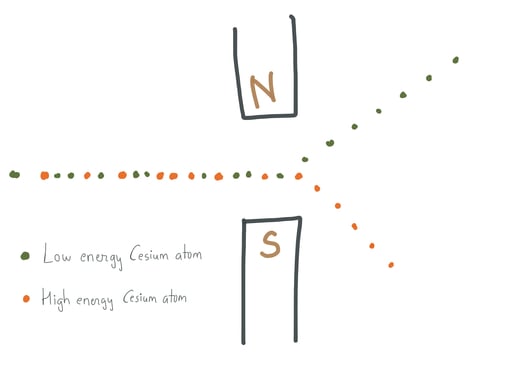 N
S
Low energy Cesium atom
High energy Cesium atom